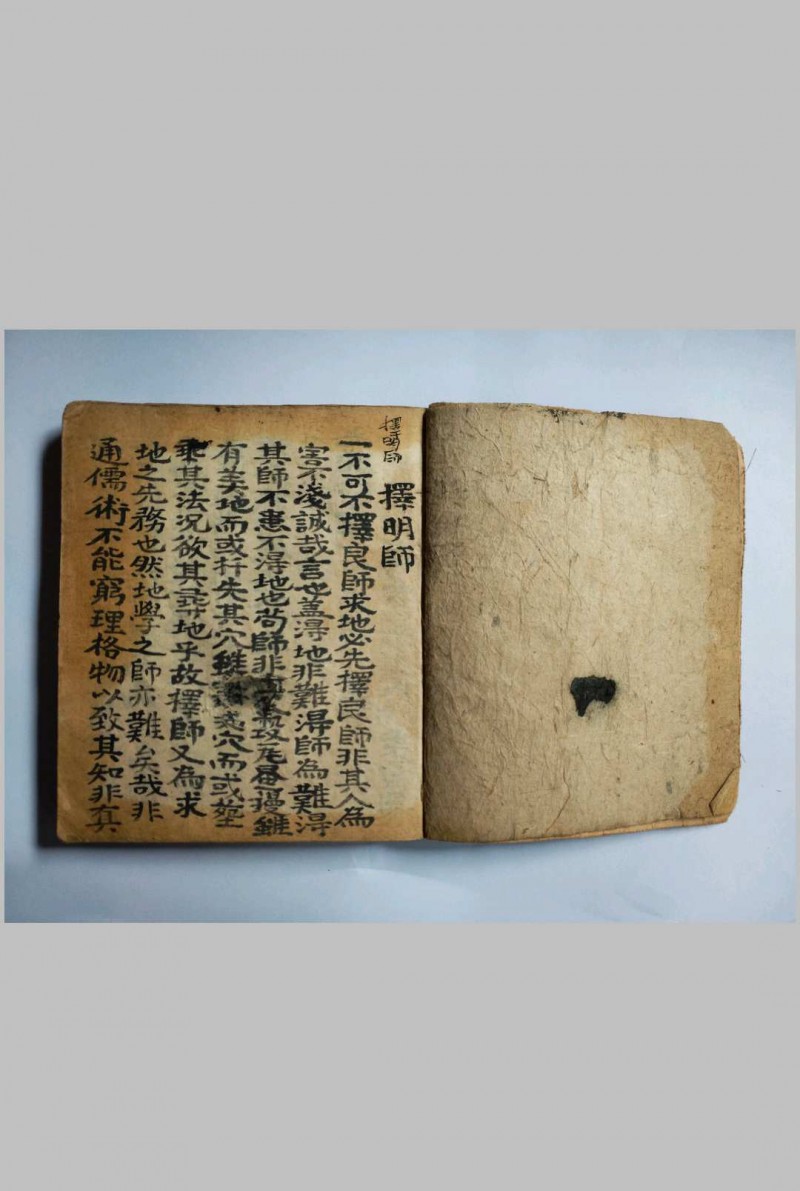 擇明師
擇明師
一不可不擇良師求地必先擇良師非其人為
害不淺誠哉言也盖淂地非難淂師為難淂
其師不患不淂地也苟師非真
有美地而或扦失其穴穴而或
乖其法况欲其尋地乎故擇師又為求
地之先務也然地學之師亦難矣哉非
通儒術不能窮理格物以致其知非真